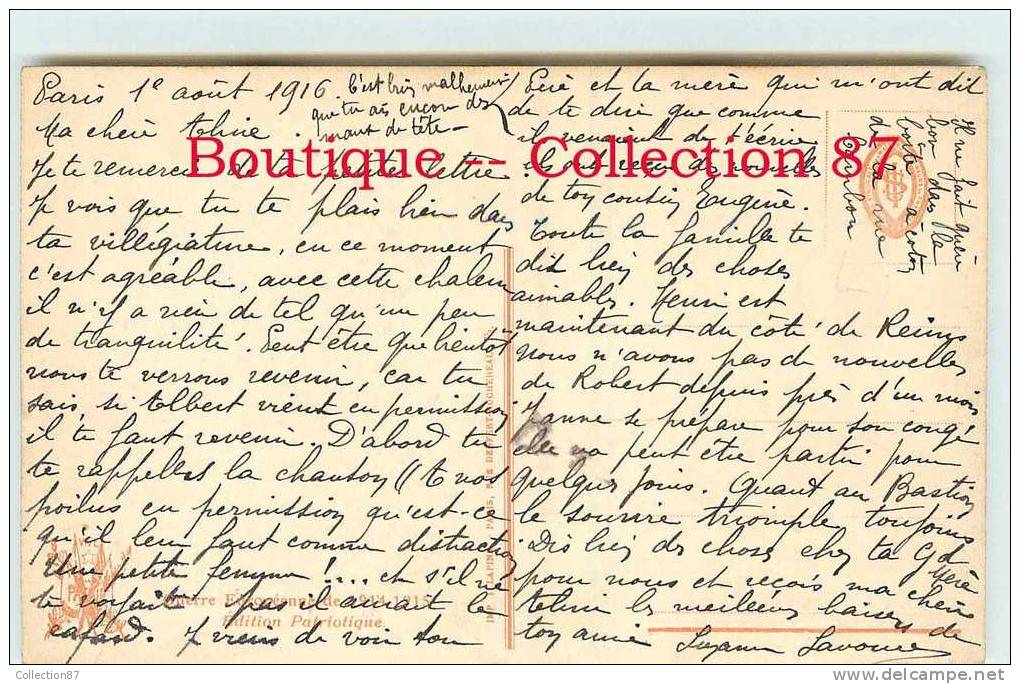 Paris 1e août 1916
C'est très malheureux
que tu ais encore des
maux de tête -
Ma chère Aline.
Je te remercie de ta petite lettre
Je vois que tu te plais bien dans
ta villégiature, en ce moment
c'est agréable, avec cette chaleur
il n'y a rien de tel qu'un peu
de tranquilité. Peut être que bientôt
nous te verrons revenir, car tu
sais, si Albert vient en permission
il te faut revenir. D'abord tu
te rappelles la chanson (( A nos
poilus en permission qu'est-ce
qu'il leur faut comme distraction
Une petite femme !.... et s'il ne
te voyait pas il aurait le
cafard. Je viens de voir ton
Père et la mère qui m'ont dit
de te dire que comme
ils venaient de t'écrire
ils ont reçu de nouvelles
de ton cousin Eugène.
Toute la famille te
dit bien des choses
aimables. Henri est
maintenant du côté de Reims
nous n'avons pas de nouvelles
de Robert depuis près d'un mois
Jeanne se prépare pour son congé
elle va peut être partir pour
quelques jours. Quant au Bastion
le sourire triomphe toujours
Dis bien des choses chez ta Gd mère
pour nous et reçois ma chère
Aline les meilleurs baisers de
ton amie Suzanne
Il ne fait guère
bon dans la
boîte à côté
de la rue
Cambon
Guerre Européenne de 1914-1915
Edition Patriotique.
Boutique -- Collection 87
Collection87
delcampe.net